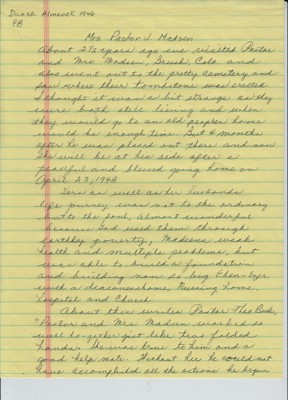 Dansk Almanak 1946
EB
Mrs Pastor J Madsen
About 2½ years ago we visited Pastor
and Mrs. Madsen, Brush, Colo. and
also went out to the pretty cemetery and
saw where their tombstone was erected
I thought it was a bit strange as they
were both still living and when
they would go to an old peoples home
would be enough time. But 4 months
after he was placed out there and now
she will be at his side after a
peaceful and blessed going home on
April 23, 1945
Hers as well as her husbands
life journey was not to the ordinary
but to the poor, almost wonderful
because God used them through
earthly poverty, Madsens weak
health and multiple problems, but
was able to build a foundation
and building now so big Eben-Ezer
with a deaconess home, Nursing home,
hospital and Church.
About this writes Pastor Theo Beck,
"Pastor and Mrs Madsen worked so
well together just like two folded
hands. She was true to him and a
good help mate. Without her he could not
have accomplished all the actions he began